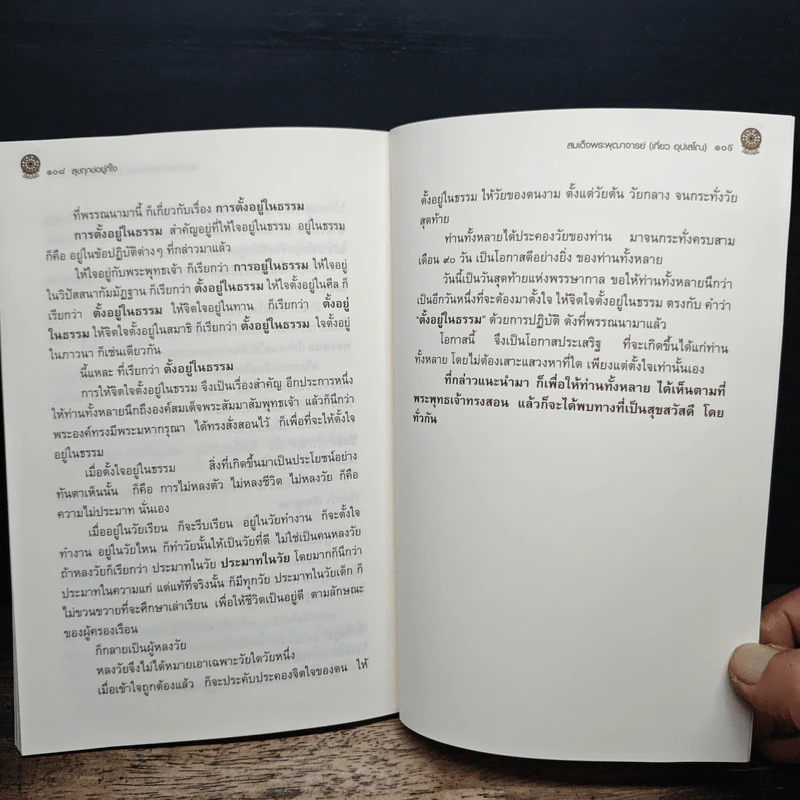 ๑๐๘ สุขทุกข์อยู่ที่ใจ
ที่พรรณนามานี้ ก็เกี่ยวกับเรื่อง การตั้งอยู่ในธรรม
การตั้งอยู่ในธรรม สำคัญอยู่ที่ให้ใจอยู่ในธรรม อยู่ในธรรม
ก็คือ อยู่ในข้อปฏิบัติต่างๆ ที่กล่าวมาแล้ว
ให้ใจอยู่กับพระพุทธเจ้า ก็เรียกว่า การอยู่ในธรรม ให้ใจอยู่
ในวิปัสสนากัมมัฏฐาน ก็เรียกว่า ตั้งอยู่ในธรรม ให้ใจตั้งอยู่ในศีล ก็
เรียกว่า ตั้งอยู่ในธรรม ให้จิตใจอยู่ในทาน ก็เรียกว่า ตั้งอยู่
ในธรรม ให้จิตใจตั้งอยู่ในสมาธิ ก็เรียกว่า ตั้งอยู่ในธรรม ใจตั้งอยู่
ในภาวนา ก็เช่นเดียวกัน
นี้แหละ ที่เรียกว่า ตั้งอยู่ในธรรม
การให้จิตใจตั้งอยู่ในธรรม จึงเป็นเรื่องสำคัญ อีกประการหนึ่ง
ให้ท่านทั้งหลายนึกถึงองค์สมเด็จพระสัมมาสัมพุทธเจ้า แล้วก็นึกว่า
พระองค์ทรงมีพระมหากรุณา ได้ทรงสั่งสอนไว้ ก็เพื่อที่จะให้ตั้งใจ
อยู่ในธรรม
เมื่อตั้งใจอยู่ในธรรม สิ่งที่เกิดขึ้นมาเป็นประโยชน์อย่าง
ทันตาเห็นนั้น ก็คือ การไม่หลงตัว ไม่หลงชีวิต ไม่หลงวัย ก็คือ
ความไม่ประมาท นั่นเอง
เมื่ออยู่ในวัยเรียน ก็จะรีบเรียน อยู่ในวัยทำงาน ก็จะตั้งใจ
ทำงาน อยู่ในวัยไหน ก็ทำวัยนั้นให้เป็นวัยที่ดี ไม่ใช่เป็นคนหลงวัย
ถ้าหลงวัยก็เรียกว่า ประมาทในวัย ประมาทในวัย โดยมากก็นึกว่า
ประมาทในความแก่ แต่แท้ที่จริงนั้น ก็มีทุกวัย ประมาทในวัยเด็ก ก็
ไม่ขวนขวายที่จะศึกษาเล่าเรียน เพื่อให้ชีวิตเป็นอยู่ดี ตามลักษณะ
ของผู้ครองเรือน
ก็กลายเป็นผู้หลงวัย
หลงวัยจึงไม่ได้หมายเอาเฉพาะวัยใดวัยหนึ่ง
เมื่อเข้าใจถูกต้องแล้ว ก็จะประคับประคองจิตใจของตน ให้
สมเด็จพระพุฒาจารย์ (เกี่ยว อุปเสโณ) ๑๐๙
ตั้งอยู่ในธรรม ให้วัยของตนงาม ตั้งแต่วัยต้น วัยกลาง จนกระทั่งวัย
สุดท้าย
ท่านทั้งหลายได้ประคองวัยของท่าน มาจนกระทั่งครบสาม
เดือน ๙๐ วัน เป็นโอกาสดีอย่างยิ่ง ของท่านทั้งหลาย
วันนี้เป็นวันสุดท้ายแห่งพรรษากาล ขอให้ท่านทั้งหลายนึกว่า
เป็นอีกวันหนึ่งที่จะต้องมาตั้งใจ ให้จิตใจตั้งอยู่ในธรรม ตรงกับ คำว่า
“ตั้งอยู่ในธรรม” ด้วยการปฏิบัติ ดังที่พรรณนามาแล้ว
โอกาสนี้ จึงเป็นโอกาสประเสริฐ ที่จะเกิดขึ้นได้แก่ท่าน
ทั้งหลาย โดยไม่ต้องเสาะแสวงหาที่ใด เพียงแต่ตั้งใจเท่านั้นเอง
ที่กล่าวแนะนำมา ก็เพื่อให้ท่านทั้งหลาย ได้เห็นตามที่
พระพุทธเจ้าทรงสอน แล้วก็จะได้พบทางที่เป็นสุขสวัสดี โดย
ทั่วกัน